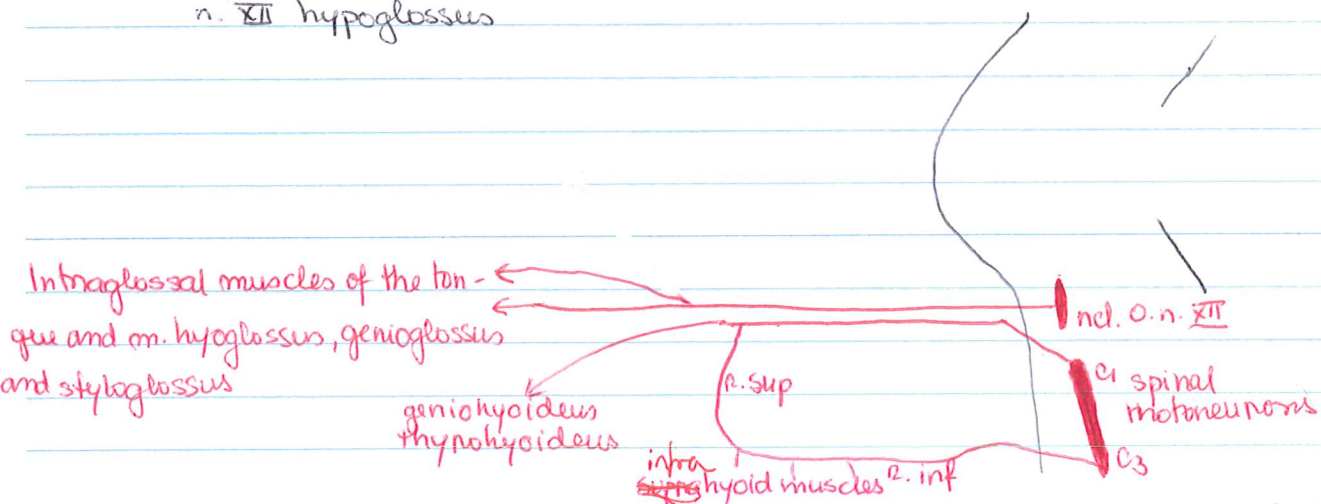 n. XII hypoglossus
Intraglossal muscles of the ton-
gue and m. hyoglossus, genioglossus
and styloglossus
ncl. O. n. XII
C1 spinal
motoneurons
r. sup
geniohyoideus
thyrohyoideus
C3
infra
hyoid muscles r. inf